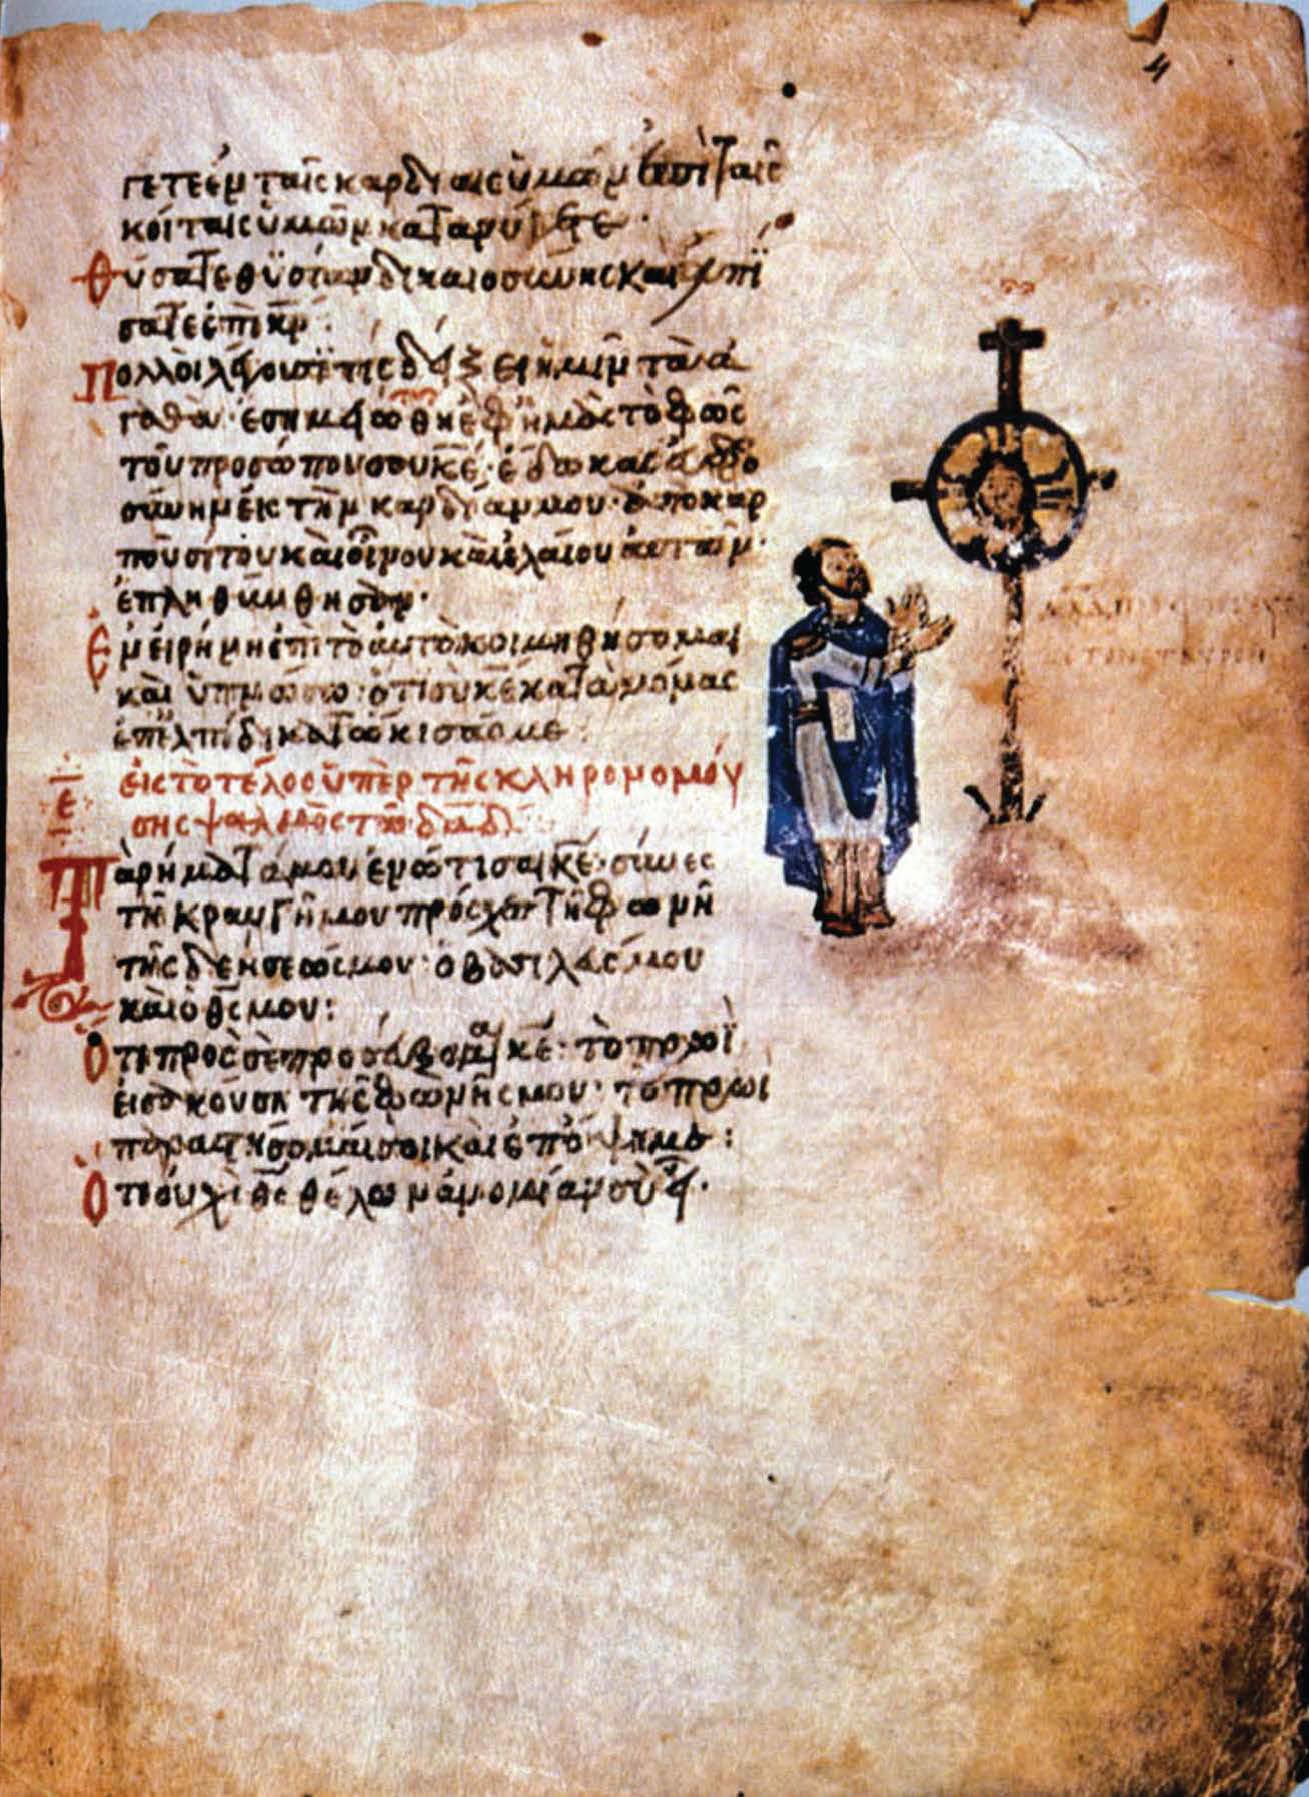 4
γετε ἐν ταῖς καρδίαις ὑμῶν ἐπὶ ταῖς
κοίταις ὑμῶν κατανύγητε·
Θύσατε θϋσίαν δικαιοσύνης καὶ ἐλπί
σατε ἐπὶ κ̅ν̅·
Πολλοὶ λέγουσϊ τίς δείξει ἡμῖν τὰ ἀ
γαθά· ἐσημειώθη ἐφ ἡμᾶς τὸ φῶς
τοῦ προσώπου σου κ̅ε̅· ἔδωκας εὐφρο
σύνημ εἰς τὴν καρδίαν μου· ἀπὸ καρ
ποῦ σίτου καὶ οἴνου καὶ ἐλαίου αὐτῶν·
ἐπληθύνθησαν·
Ἐν εἰρήνη ἐπὶ τὸ αὐτὸ κοιμηθήσομαι
καὶ ὑπνώσω· ὅτι σὺ κ̅ε̅ κατὰ μόνας
ἐπ ἐλπίδι κατώκισάς με:
ε̅ εἰς τὸ τέλος ὑπὲρ τῆς κληρονομού
σης ψαλμὸς τῶ δα̅δ̅:
Τὰ ρήματά μου ἐνώτισαι κ̅ε̅· σύνες
τῆ κραυγῆ μου πρόσχες τῆ φωνῆ
τῆς δεήσεώς μου· ὁ βασιλεύς μου
καὶ ὁ θ̅ς̅ μου:
Ὅτι πρὸς σὲ προσεύξομαι κ̅ε̅· τὸ πρωῒ
εἰσακούση τῆς φωνῆς μου· τὸ πρωῒ
παραστήσομαί σοι καὶ ἐπόψη με:
Ὅτι οὐχὶ θ̅ς̅ θέλων ἀνομίαν σὺ εἶ·